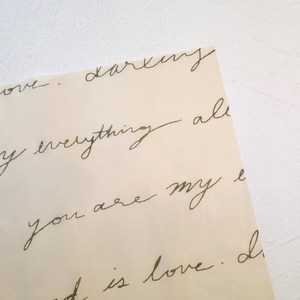 love. darling
my everything al
you are my e
is love. d